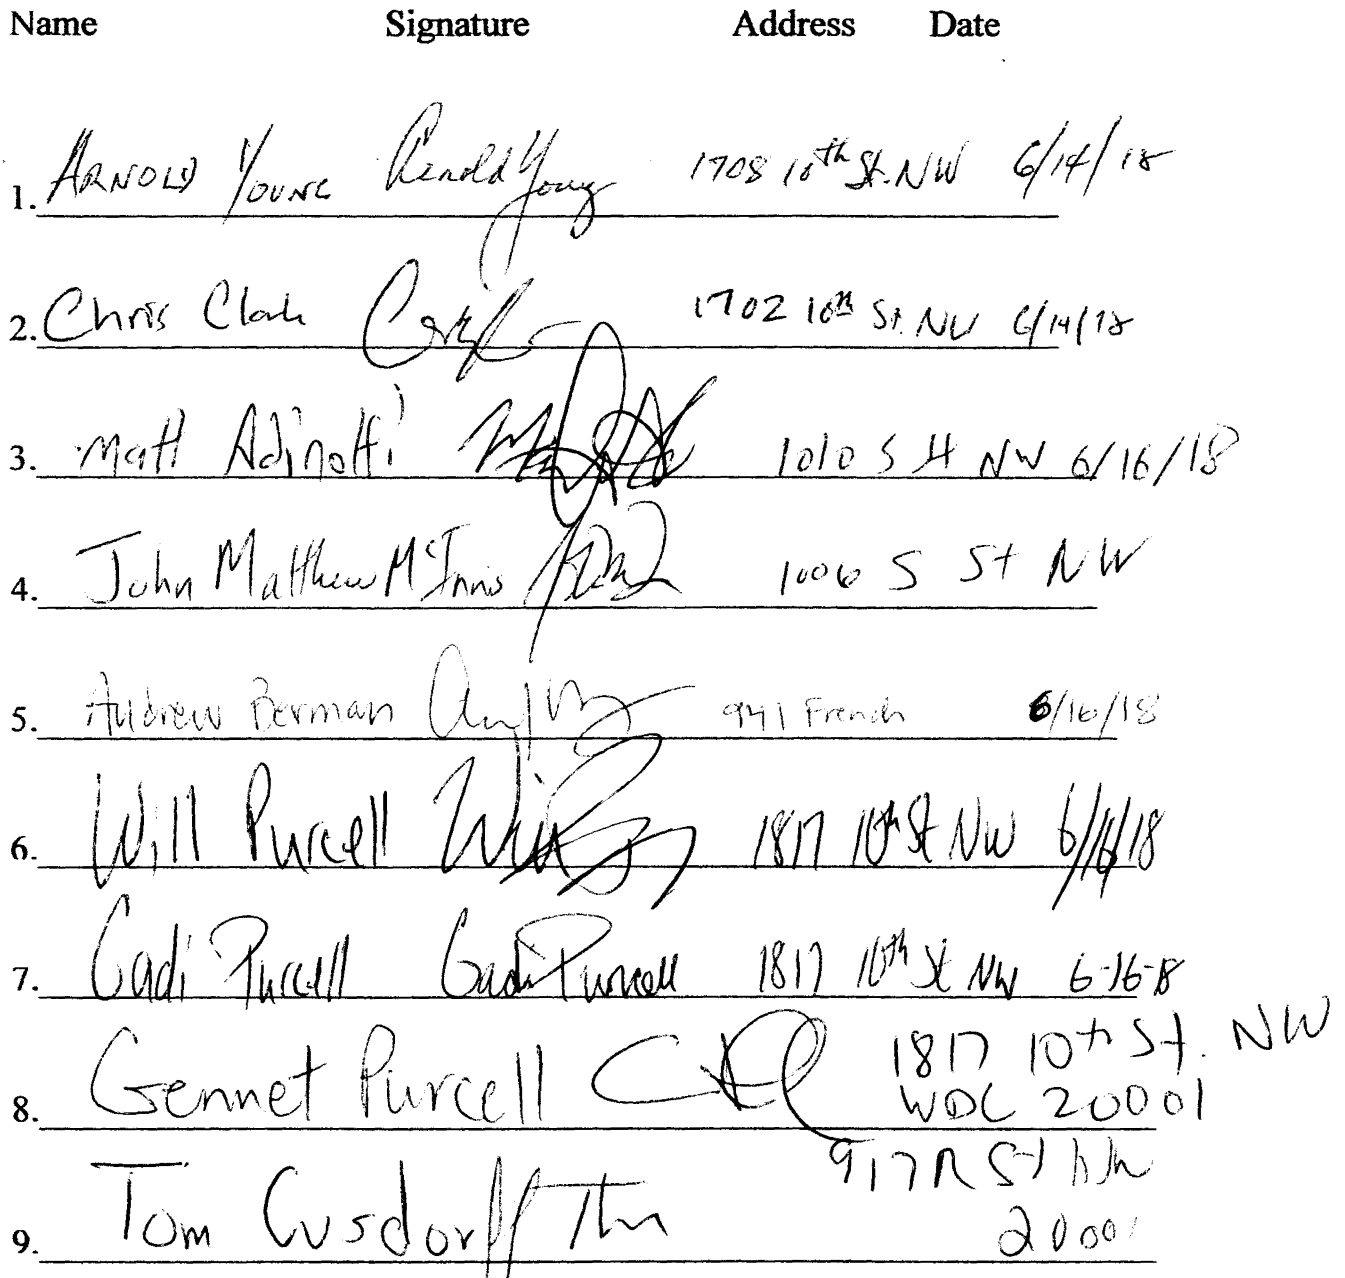 Name Signature Address Date
1. ARNOLD YOUNG Arnold Young 1708 10th St. NW 6/14/18
2. Chris Clark 1702 10th St. NW 6/14/18
3. Matt Adinolfi 1010 S St NW 6/16/18
4. John Matthew McInnis 1006 S St NW
5. Andrew Berman 941 French 6/16/18
6. Will Purcell 1817 10th St NW 6/16/18
7. Gadi Purcell Gadi Purcell 1817 10th St NW 6-16-18
8. Gennet Purcell 1817 10th St. NW
WDC 20001
9. Tom Gusdorff Tom 917 R St NW
20001